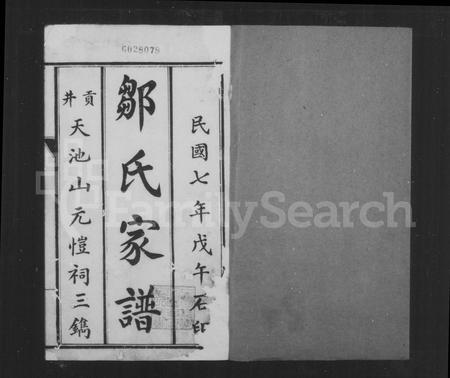 G028078
民國七年戊午石印
鄒氏家譜
貢井
天池山元愷祠三鐫
FamilySearch